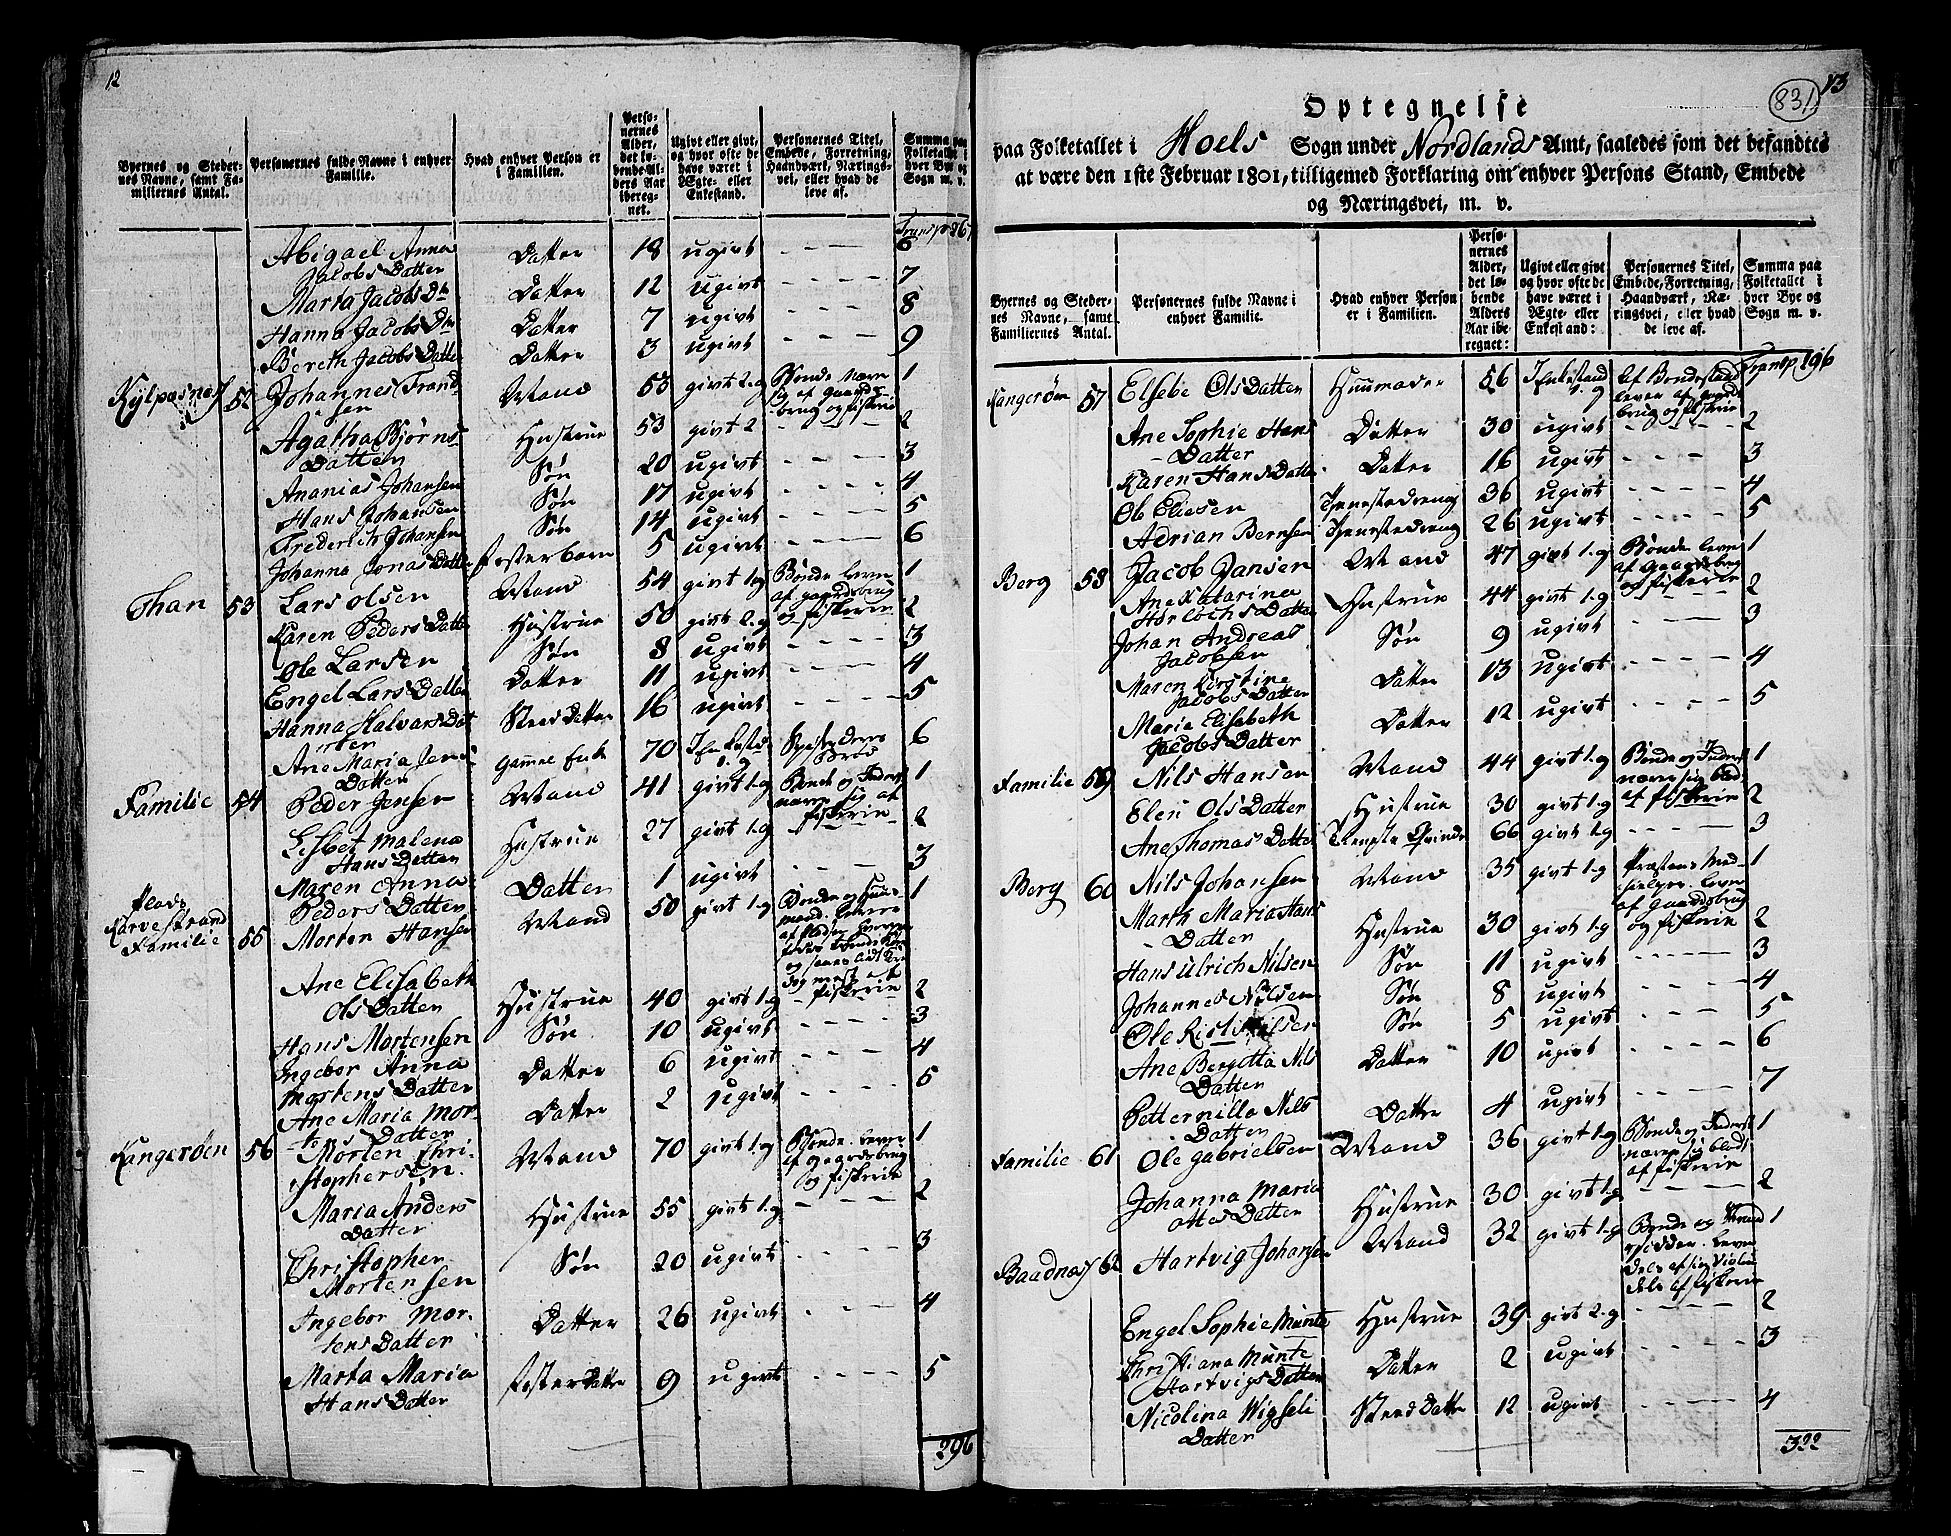 12
Byernes og Steder-
nes Navne, samt Fa-
miliernes Antal.
Personernes fulde Navne i enhver
Familie.
Hvad enhver Person er
i Familien.
Perso-
nernes
Alder,
det lø-
bende Al-
ders Aar
iberegnet.
Ugivt eller givt,
og hvor ofte de
have været i
Ægte- eller
Enkestand.
Personernes Titel,
Embede, Forretning,
Haandværk, Nærings-
vei, eller hvad de
leve af.
Summa paa
Folketallet i
hver Bye og
Sogn m. v.
Transp. 267
Abigael Anna Datter 18 ugivt - - - - 6
Jacobs Datter
Marta Jacobs Dtr Datter 12 ugivt - - - - 7
Hanna Jacobs Dtr Datter 7 ugivt - - - - 8
Bereth Jacobs Datter Datter 3 ugivt - - - - 9
Kylpesnes 52 Johannes Frand- Mand 53 givt 2.g Bonde nære 1
sen sig af Gaards-
brug og fiskerie
Agatha Bjørns- Hustrue 53 givt 2 - - - - 2
Datter
Ananias Johansen Søn 20 ugivt - - - - 3
Hans Johansen Søn 17 ugivt - - - - 4
Frederich Johansen Søn 14 ugivt - - - - 5
Johanna Jonas Datter Fosterbarn 5 ugivt - - - - 6
Than 53 Lars Olsen Mand 54 givt 1.g Bonde leve 1
af gaardsbrug
og fiskerie
Karen Peders Datter Hustrue 50 givt 2.g 2
Ole Larsen Søn 8 ugivt - - - - 3
Engel Lars Datter Datter 11 ugivt - - - - 4
Hanna Halvars Dat Steed Datter 16 ugivt - - - - 5
Ane Maria Jens gamel Enke 70 1 Enkestd 6
Datter
Familie 54 Peder Jensen Mand 41 givt 1.g Bonde og Inderst 1
nære sig af
fiskerie
Lisbet Malena Hustrue 27 givt 1.g 2
Hans Datter
Maren Anna Datter 1 ugivt - - - 3
Peders Datter
Plads
Karvestrand
Familie 55 Morten Hansen Mand 50 givt 1.g Bonde og Huus- 1
mand
og mest af
fiskerie
Ane Elisabeth Hustrue 40 givt 1.g 2
Ols Datter
Hans Mortensen Søn 10 ugivt - - - - 3
Ingebor Anna Datter 6 ugivt - - - - 4
Mortens Datter
Ane Maria Mor- Datter 2 ugivt - - - - 5
tens Datter
Kangerøen 56 Morten Chri- Mand 70 givt 1.g Bonde. Lever 1
stophersen. af gaardsbrug
og fiskerie
Maria Anders Hustrue 55 givt 1.g - - - - 2
Datter
Christopher Søn 20 ugivt - - - - 3
Mortensen
Ingebor Mor- Datter 26 ugivt - - - - 4
tens Datter
Marta Maria Foster Datter 9 ugivt - - - - 5
Hans Datter
296
831 13
Optegnelse
paa Folketallet i Hoels Sogn under Nordlands Amt, saaledes som det befandtes
at være den 1ste Februar 1801, tilligemed Forklaring om enhver Persons Stand, Embede
og Næringsvei, m. v.
Byernes og Steder-
nes Navne, samt
Familiernes Antal.
Personernes fulde Navne i
enhver Familie.
Hvad enhver Person
er i Familien.
Perso-
nernes
Alder,
det lø-
bende
Alders
Aar ibe-
regnet:
Ugivt eller givt
og hvor ofte de
have været i
Ægte- eller
Enkestand:
Personernes Titel,
Embede, Forretning,
Haandværk, Næ-
ringsvei, eller hvad
de leve af.
Summa paa
Folketallet i
hver Bye og
Sogn m. v.
Transp 296
Kangerøen 57 Elsebe Ols Datter Huusmoder 56 1 Enkestand Af Bondestand
lever af gaards
brug og fiskrie
Ane Sophie Hans Datter 30 ugivt - - - - 2
Datter
Karen Hans Datter Datter 16 ugivt - - - 3
Ole Eliesen Tjenestedreng 36 ugivt - - - - 4
Adrian Bernsen Tjenestedreng 26 ugivt - - - - 5
Berg 58 Jacob Jansen Mand 47 givt 1.g Bonde leve 1
af gaardsbrug
og fiskerie
Ane Katarina Hustrue 44 givt 1.g 2
Horlochs Datter
Johan Andreas Søn 9 ugivt - - - - 3
Jacobsen
Maren Kirstine Datter 13 ugivt - - - - 4
Jacobs Datter
Marie Elisabeth Datter 12 ugivt - - - - 5
Jacobs Datter
Familie 59 Nils Hansen Mand 44 givt 1.g Bonde og Inderst 1
nære sig blot
af fiskerie
Elen Ols Datter Hustrue 30 givt 1.g 2
Ane Thomas Datter Tieneste Qvinde 66 givt 1.g - - - - 3
Berg 60 Nils Johansen Mand 35 givt 1.g Præstens Med- 1
hielper. leve
af Gaardsbrug
og fiskerie
Marth Maria Hans Hustrue 30 givt 1.g 2
Datter
Hans Ulrich Nilsen Søn 11 ugivt - - - - 3
Johannes Nilsen Søn 8 ugivt - - - - 4
Ole Nilsen Søn 5 ugivt - - - - 5
Ane Bergitta Nils Datter 10 ugivt - - - - 6
Datter
Petternilla Nils Datter 4 ugivt - - - - 7
Datter
Familie 61 Ole Gabrielsen Mand 36 givt 1.g Bonde og Inderst 1
nære sig blot
af fiskerie
Johanna Maria Hustrue 30 givt 1.g - - - - 2
Ottes Datter
Baadnes 62 Hartvig Johansen Mand 32 givt 1.g Bonde og Strand 1
sidder. lever
dels af sin Violin
dels af fiskerie
Engel Sophie Munte Hustrue 39 givt 2.g - - - - 2
Christiana Munte Datter 2 ugivt - - - - 3
Hartvigs Datter
Nicolina Wigseli Steed Datter 12 ugivt - - - - 4
Datter
322